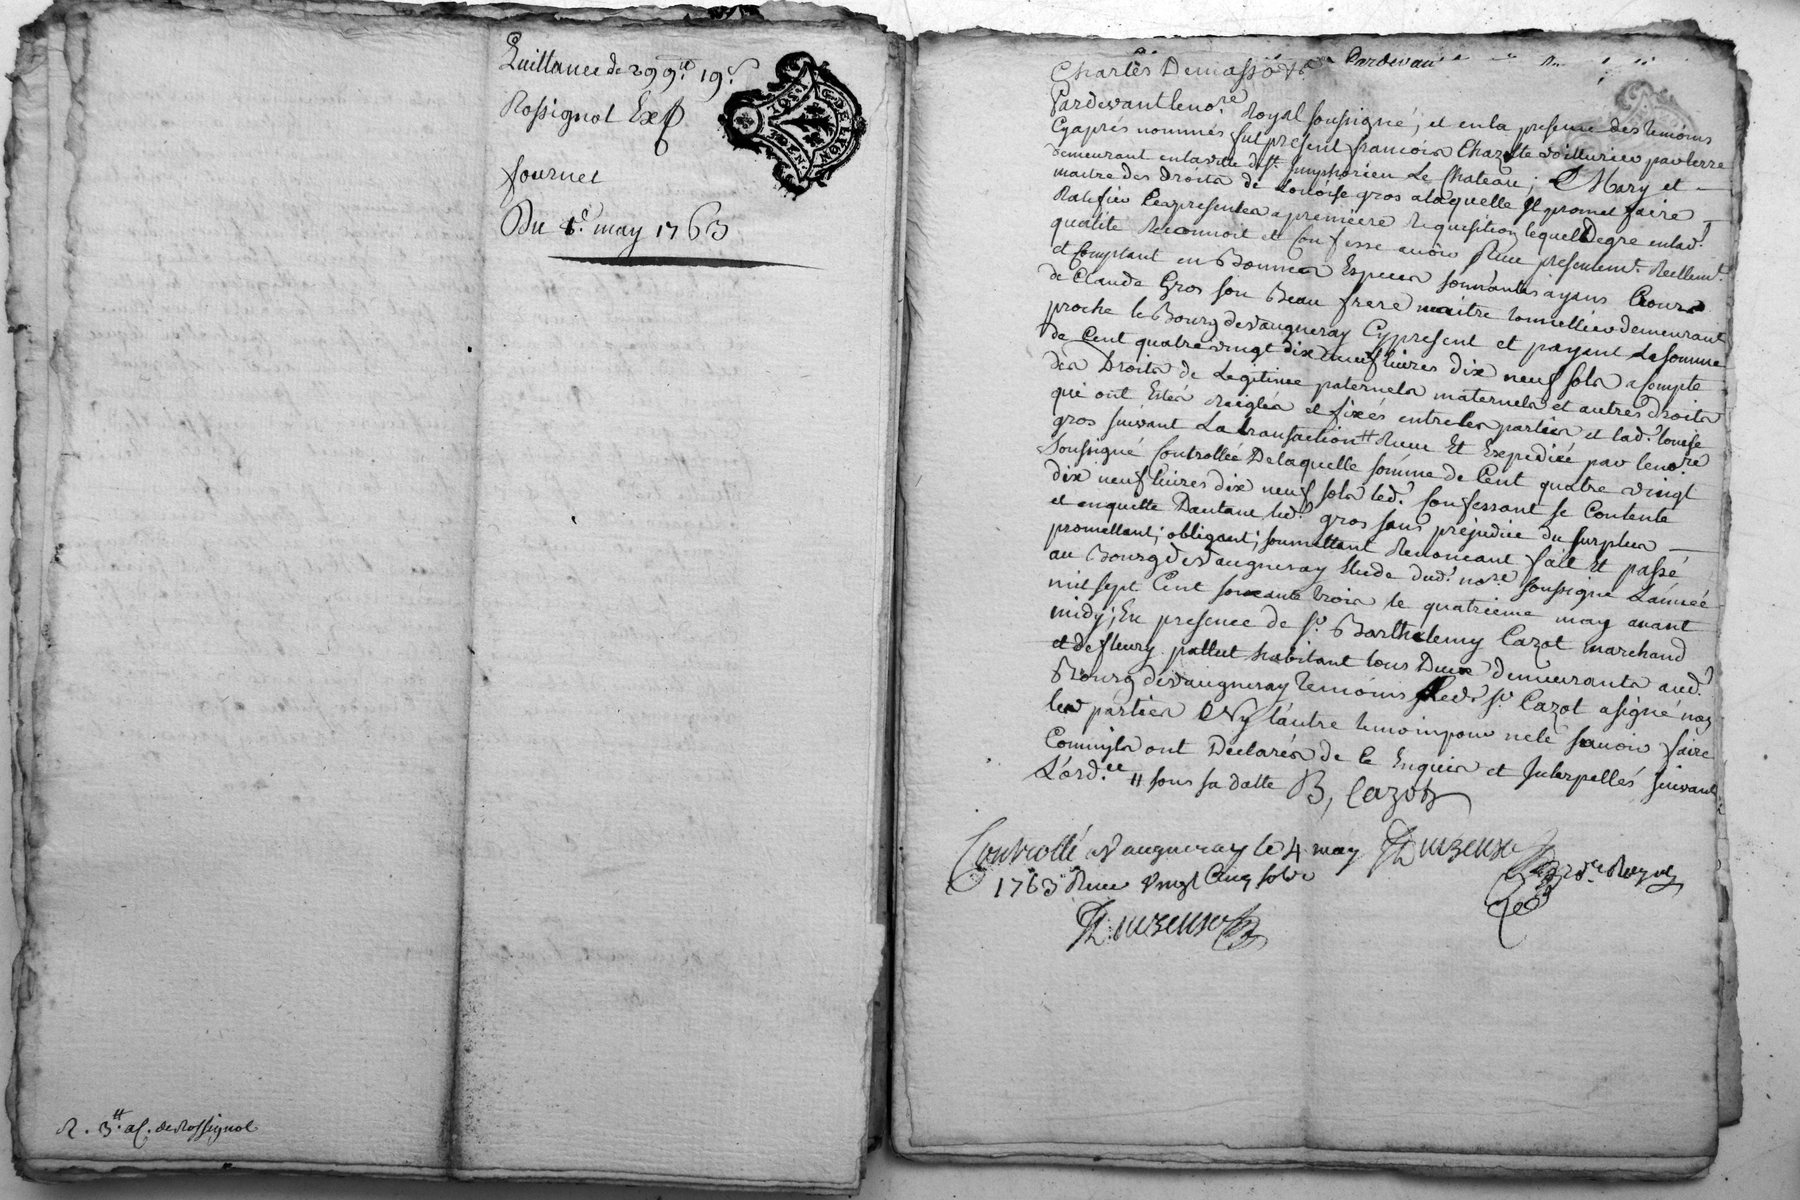 Quittance de 299.# 19.s
Rossignol Exp
fournel
Du 1.er may 1763
G. DE LYON
R. 3.# de Rossignol
Charles Pardevant
Pardevant le no.re Royal soussigné, et en la presence des temoins
Cyaprés nommés fut present francois Chazotte voiturier par terre
demeurant en la ville de S.t Simphorien Le Chateau; Mary et
maitre des Droits de Loüoise gros a laquelle Il promet faire
Ratifier Ces presentes a premiere requisition lequel De gré en lad.
qualité Reconnoit et Confesse avoir Receu presentem.t Réellem.t
et Comptant en Bonnes Especes sonnantes ayans Cours
de Claude Gros son Beau frere maitre tonnellier demeurant
proche le Bourg de Vaugneray Cy present et payant La somme
de Cent quatre vingt dix neuf livres dix neuf sols acompte
des Droits de Legitime paternels maternels et autres Droits
qui ont Estés Reiglés et fixés entre les parties et lad. louise
gros suivant La transaction # Receue Et Expediée par le no.re
Soussigné Controllée De laquelle somme de Cent quatre vingt
dix neuf livres dix neuf sols led. Confessant se Contente
et en quitte Dautant led. gros sans préjudice du surplus
promettant; obligeant; soumettant Renoncant fait et passé
au Bourg de Vaugneray Etude dud. no.re soussigné L'année
mil sept Cent soixante trois le quatrieme may avant
midy; En presence de s.r Barthelemy Cazot marchand
et de fleury pallut habitant tous Deux Demeurants aud.
Bourg de Vaugneray temoins led. s.r Cazot a signé non
les parties Ny l'autre temoin pour ne le savoir faire
Comm'ils ont Déclarés de Ce Enquis et Interpellés suivant
L'ord.ce # sous sa datte B, Cazot
Controllé a Vaugneray le 4 may
1763 Receu Vingt Cinq sols